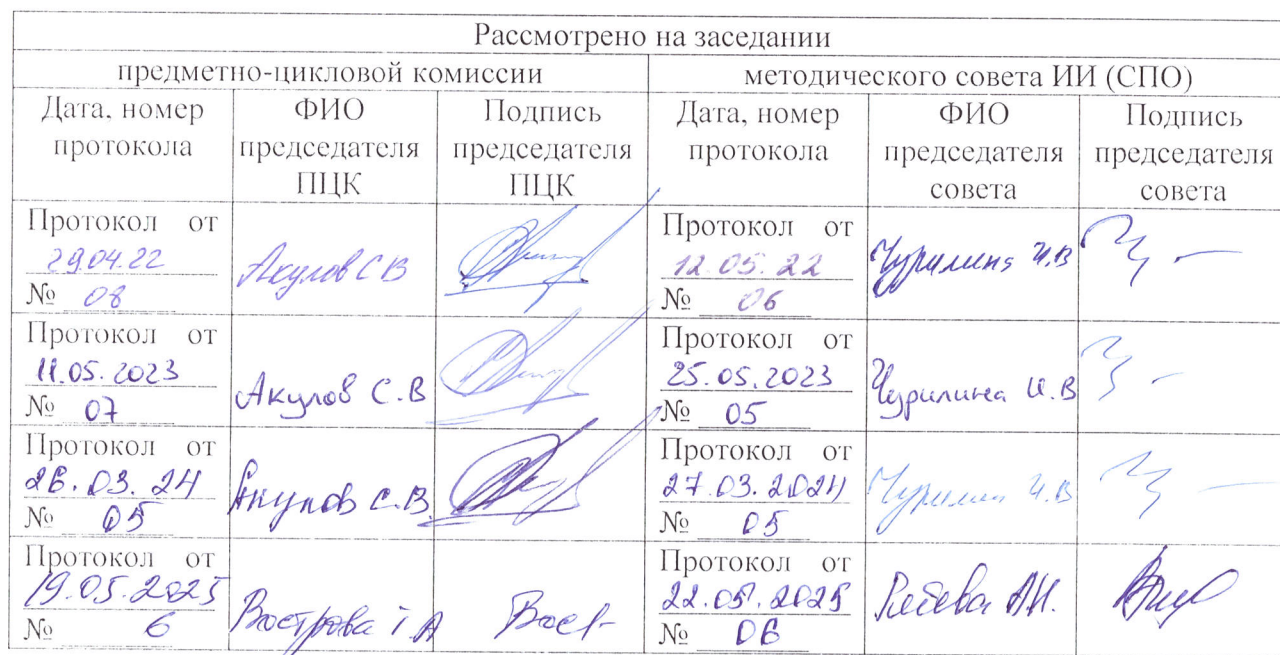 Рассмотрено на заседании
предметно-цикловой комиссии методического совета ИИ (СПО)
Дата, номер протокола ФИО председателя ПЦК Подпись председателя ПЦК Дата, номер протокола ФИО председателя совета Подпись председателя совета
Протокол от
29.04.22
№ 08
Акулов С В
Протокол от
12.05.22
№ 06
Чурилина И.В
Протокол от
11.05.2023
№ 07
Акулов С.В
Протокол от
25.05.2023
№ 05
Чурилина И.В
Протокол от
26.03.24
№ 05
Акулов С.В.
Протокол от
27.03.2024
№ 05
Чурилина И.В
Протокол от
19.05.2025
№ 6
Вострова Т А
Протокол от
22.05.2025
№ 06